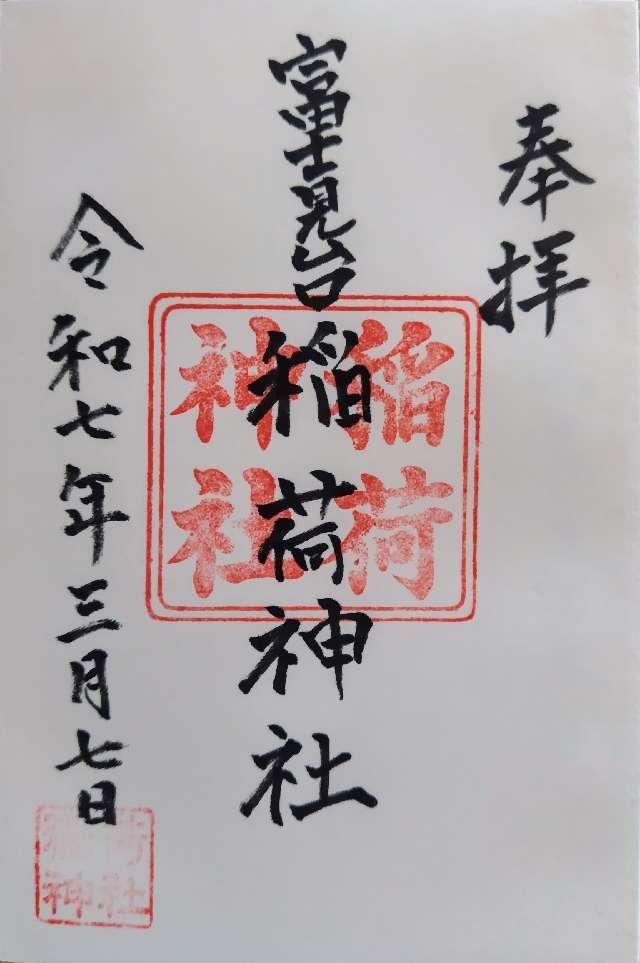 奉拝
富士見台稲荷神社
稲荷
神社
令和七年三月七日
稲荷
神社